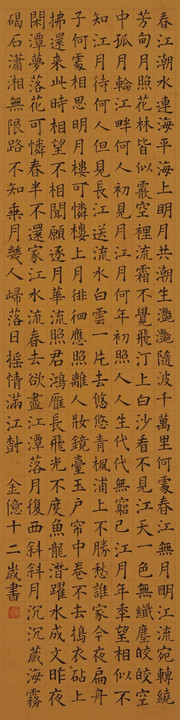 春江潮水連海平海上明月共潮生灩灩隨波千萬里何處春江無月明江流宛轉繞
芳甸月照花林皆似霰空裡流霜不覺飛汀上白沙看不見江天一色無纖塵皎皎空
中孤月輪江畔何人初見月江月何年初照人人生代代無窮已江月年季望相似不
知江月待何人但見長江送流水白雲一片去悠悠青楓浦上不勝愁誰家今夜扁舟
子何處相思明月樓可憐樓上月徘徊應照離人妝鏡臺玉戶帘中卷不去搗衣砧上
拂還來此時相望不相聞願逐月華流照君鴻雁長飛光不度魚龍潛躍水成文昨夜
閑潭夢落花可憐春半不還家江水流春去欲盡江潭落月復西斜斜月沉沉藏海霧
碣石瀟湘無限路不知乘月幾人歸落日搖情滿江樹 金億十二歲書